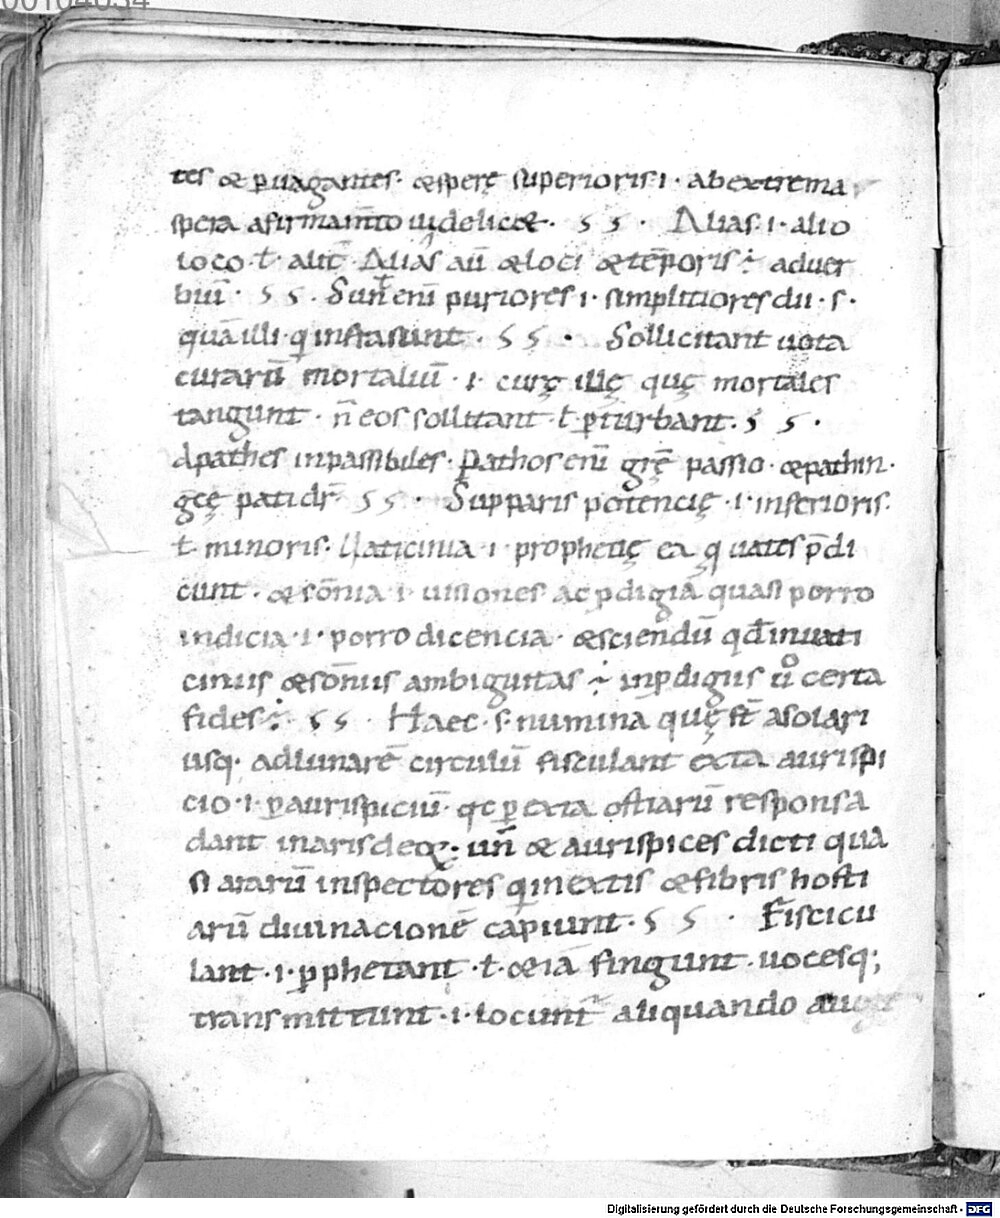 00104034
tes & ꝑuagantes· & sperę superioris·i· ab extrema
spera a firmam̄to uidelic&· ꞩ ꞩ · Alias·i· alio
loco·ƚ· alit̄· Alias aū & loci & tēporis ÷ aduer
biū· ꞩ ꞩ · Sunt̄ enī puriores·i· simplitiores dii·s·
quā illi qi infra sunt· ꞩ ꞩ · Sollicitant uota
curarū mortaliū·i· curę illę quę mortales
tangunt· n̄ eos sollitant·ƚ· ꝑturbant· ꞩ ꞩ ·
Apathes inpassibiles· Pathos enī grę̄ passio· & pathin·
gcę̄ pati dr̄ ꞩ ꞩ · Supparis potencię·i· inferioris·
ƚ· minoris· Uaticinia·i· prophetię ea q̨ uates p̄di
cunt· & sōnia·i· uisiones ac ꝓdigia quasi porro
indicia·i· porro dicencia· & sciendū qđ in uati
ciniis & sōniis ambiguitas ÷ in ꝓdigiis ůo certa
fides ÷ ꞩ ꞩ · Haec·s· numina quę st̄ a solari
usq· ad lunarē circulū fisculant exta aurispi
cio·i· ꝑ aurispiciū· qc ꝑ exta ostiarū responsa
dant in aris deoꝝ· un̄ & aurispices dicti qua
si ararū inspectores qi in extis & fibris hosti
arū diuinacionē capiunt· ꞩ ꞩ · Fiscicu
lant·i· ꝓphetant·ƚ· &iā fingunt· uocesq;
transmittunt·i· locunt̄ aliquando
Digitalisierung gefördert durch die Deutsche Forschungsgemeinschaft - DFG